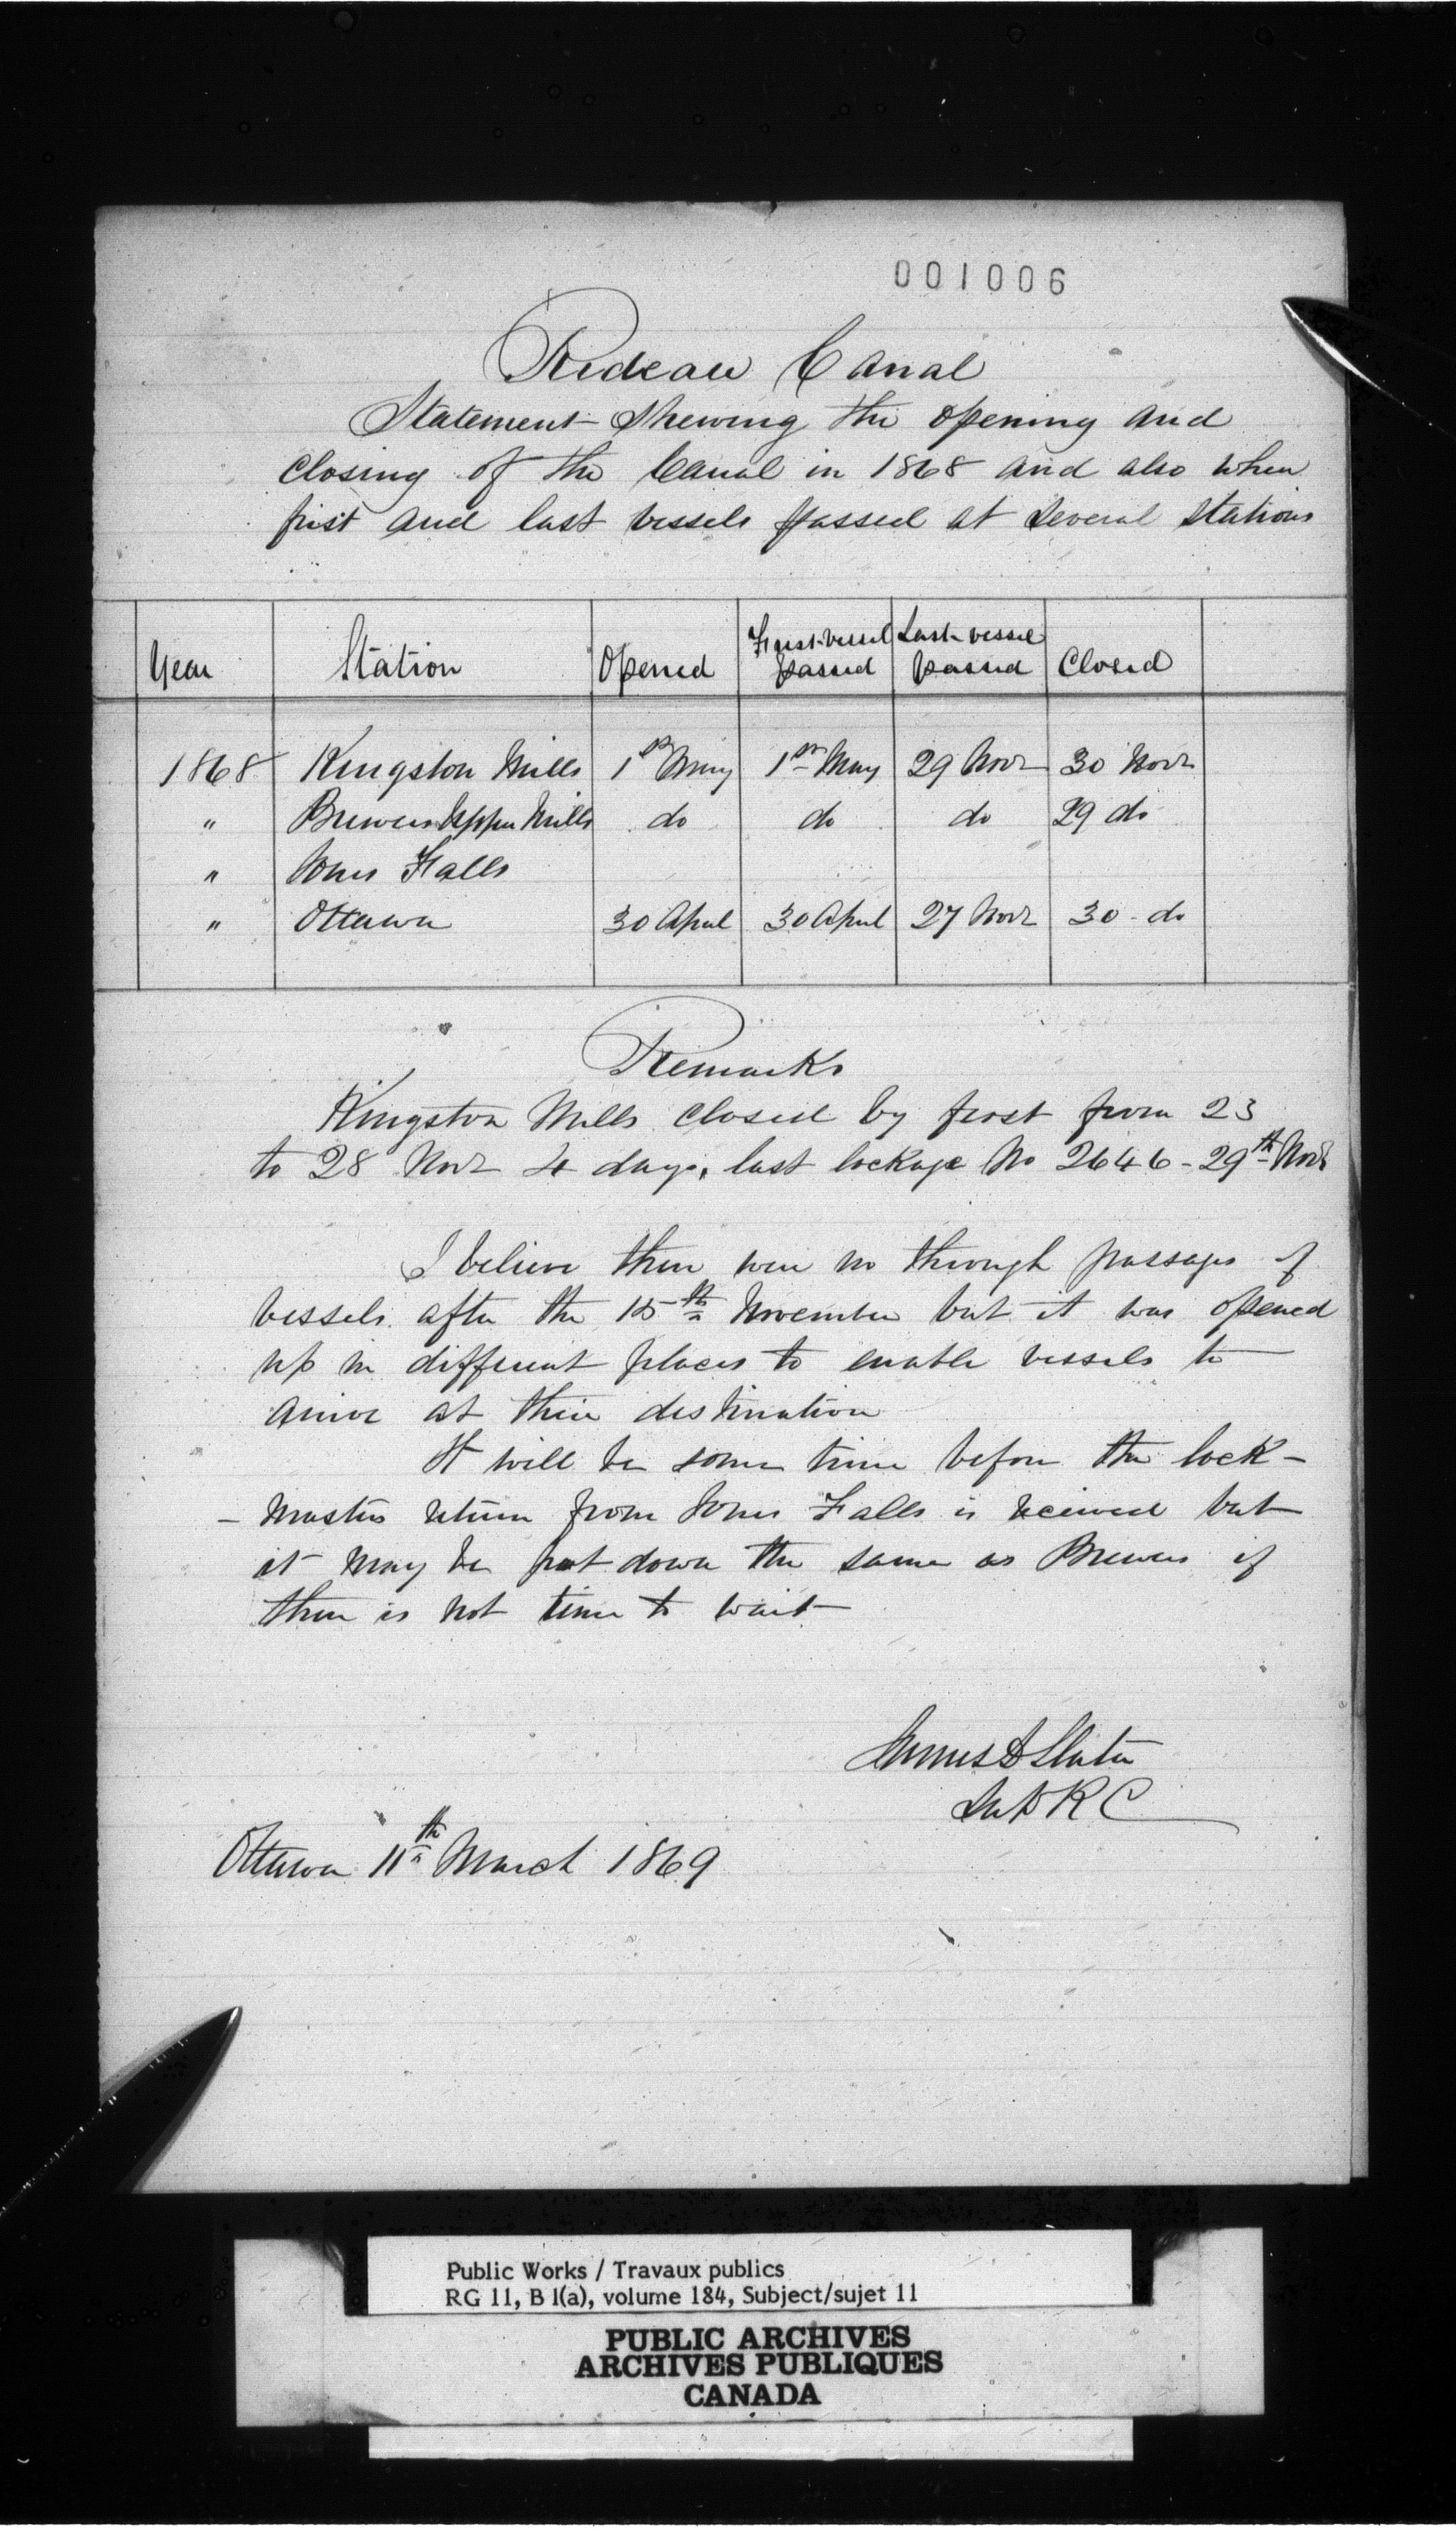 001006
Rideau Canal
Statement Shewing the opening and
closing of the Canal in 1868 and also when
first and last vessels passed at several stations
Year Station Opened First vessel passed Last vessel passed Closed
1868 Kingston Mills 1st May 1st May 29 Novr 30 Novr
" Brewers Upper Mills do do do 29 do
" Jones Falls
" Ottawa 30 April 30 April 27 Novr 30 - do
Remarks
Kingston Mills closed by frost from 23
to 28 Novr 4 days, last lockage No 2646 - 29th Novr
I believe there were no through passages of
vessels after the 15th November but it was opened
up in different places to enable vessels to
arrive at their destination
It will be some time before the lock -
- masters return from Jones Falls is received but
it may be put down the same as Brewers if
there is not time to wait
James D Slater
Supt R C
Ottawa 11th March 1869
Public Works / Travaux publics
RG 11, B 1(a), volume 184, Subject/sujet 11
PUBLIC ARCHIVES
ARCHIVES PUBLIQUES
CANADA